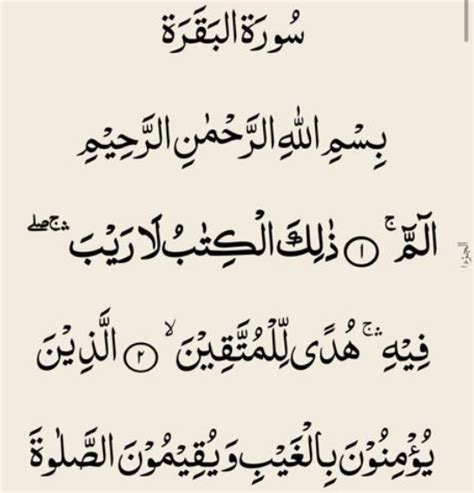 سُورَةُ البَقَرَة
بِسْمِ اللّٰهِ الرَّحْمٰنِ الرَّحِيْمِ
الٓمّٓ ۚ ١ ذٰلِكَ الْكِتٰبُ لَا رَيْبَ ۛۚ ۖ
فِيْهِ ۛۚ هُدًى لِّلْمُتَّقِيْنَ ۙ ٢ الَّذِيْنَ
يُؤْمِنُوْنَ بِالْغَيْبِ وَيُقِيْمُوْنَ الصَّلٰوةَ